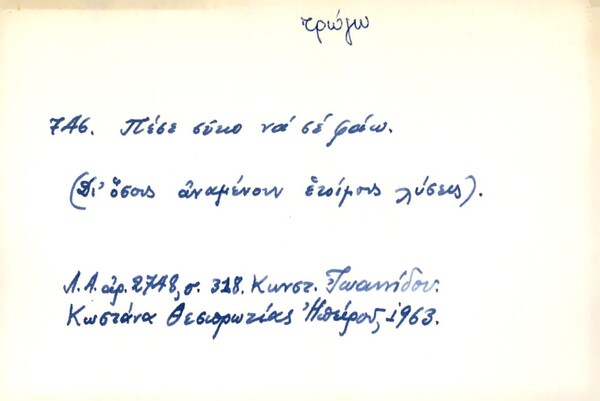 τρώγω
746. Πέσε σῦκο νά σέ φάω.
(Δι' ὅσους ἀναμένουν ἑτοίμους λύσεις).
Λ.Α. ἀρ. 2748, σ. 318. Κωνστ. Ἰωαννίδου.
Κωστάνα Θεσπρωτίας Ἠπείρου, 1963.